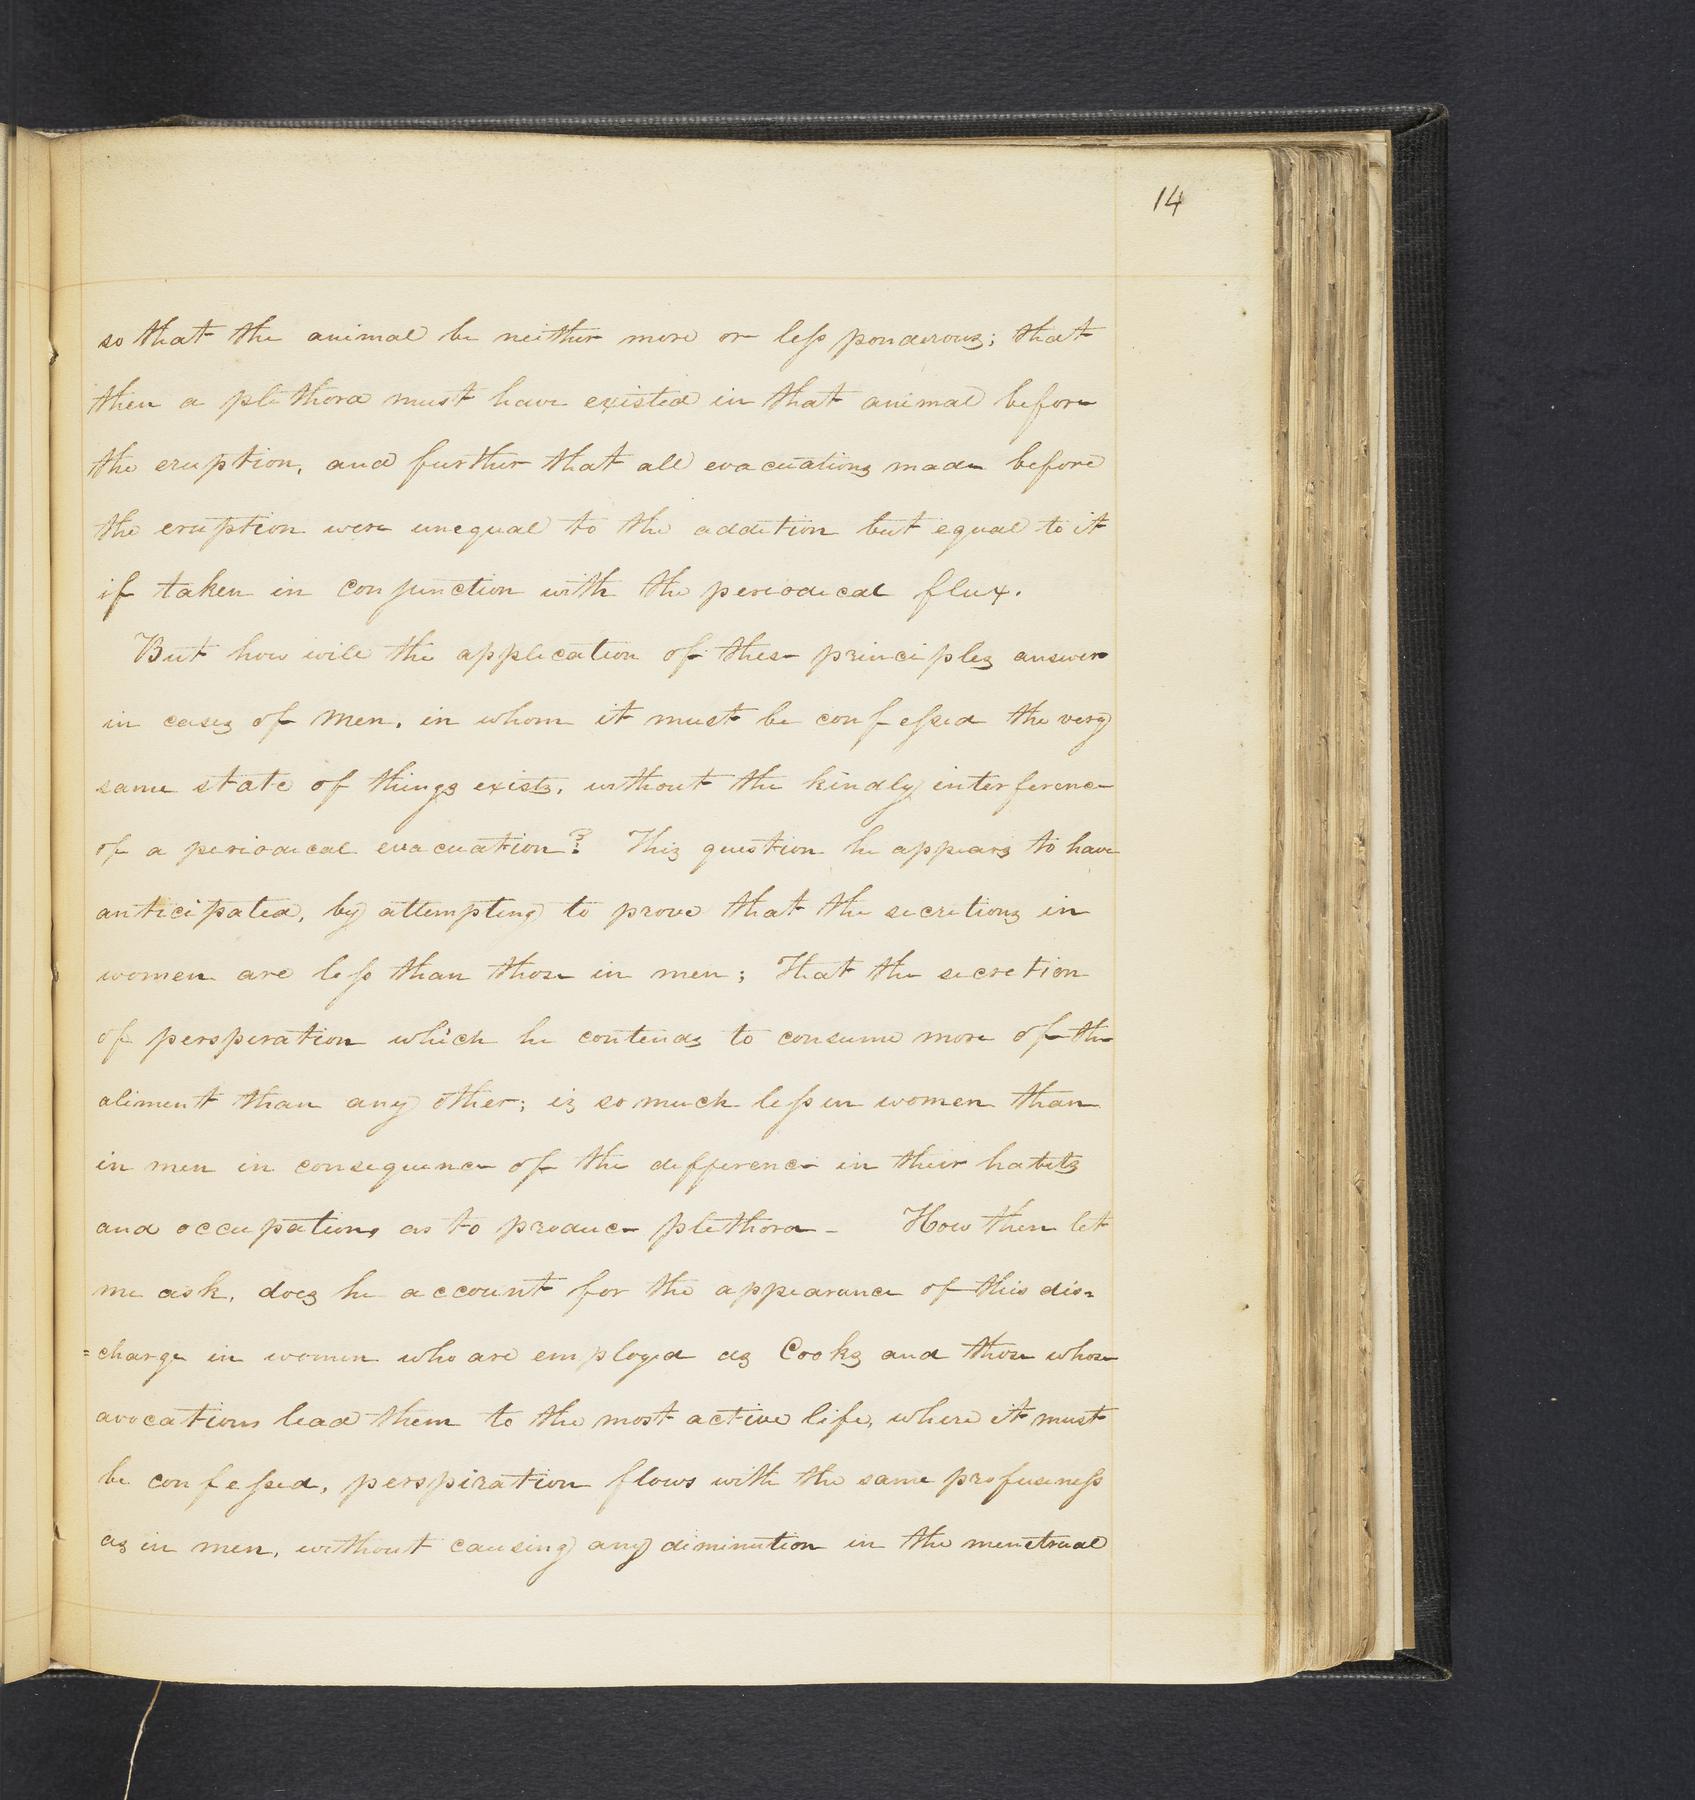 14
so that the animal be neither more or less ponderous; that
then a plethora must have existed in that animal before
the eruption, and further that all evacuations made before
the eruption were unequal to the addition but equal to it
if taken in conjunction with the periodical flux.
But how will the application of these principles answer
in cases of men, in whom it must be confessed the very
same state of things exists, without the kindly interference
of a periodical evacuation? This question he appears to have
anticipated, by attempting to prove that the secretions in
women are less than those in men; That the secretion
of persperation which he contends to consume more of the
aliment than any other; is so much less in women than
in men in consequence of the difference in their habits
and occupations as to produce plethora - How then let
me ask, does he account for the appearance of this dis=
=charge in women who are employed as Cooks and those whose
avocations lead them to the most active life, where it must
be confessed, perspiration flows with the same profuseness
as in men, without causing any diminution in the menstrual